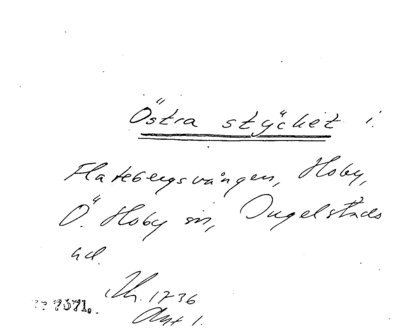 Östra stycket i
Flatebergsvången, Hoby,
Ö. Hoby sn, Ingelstads
hd.
Lht. 1736
Akt 1.